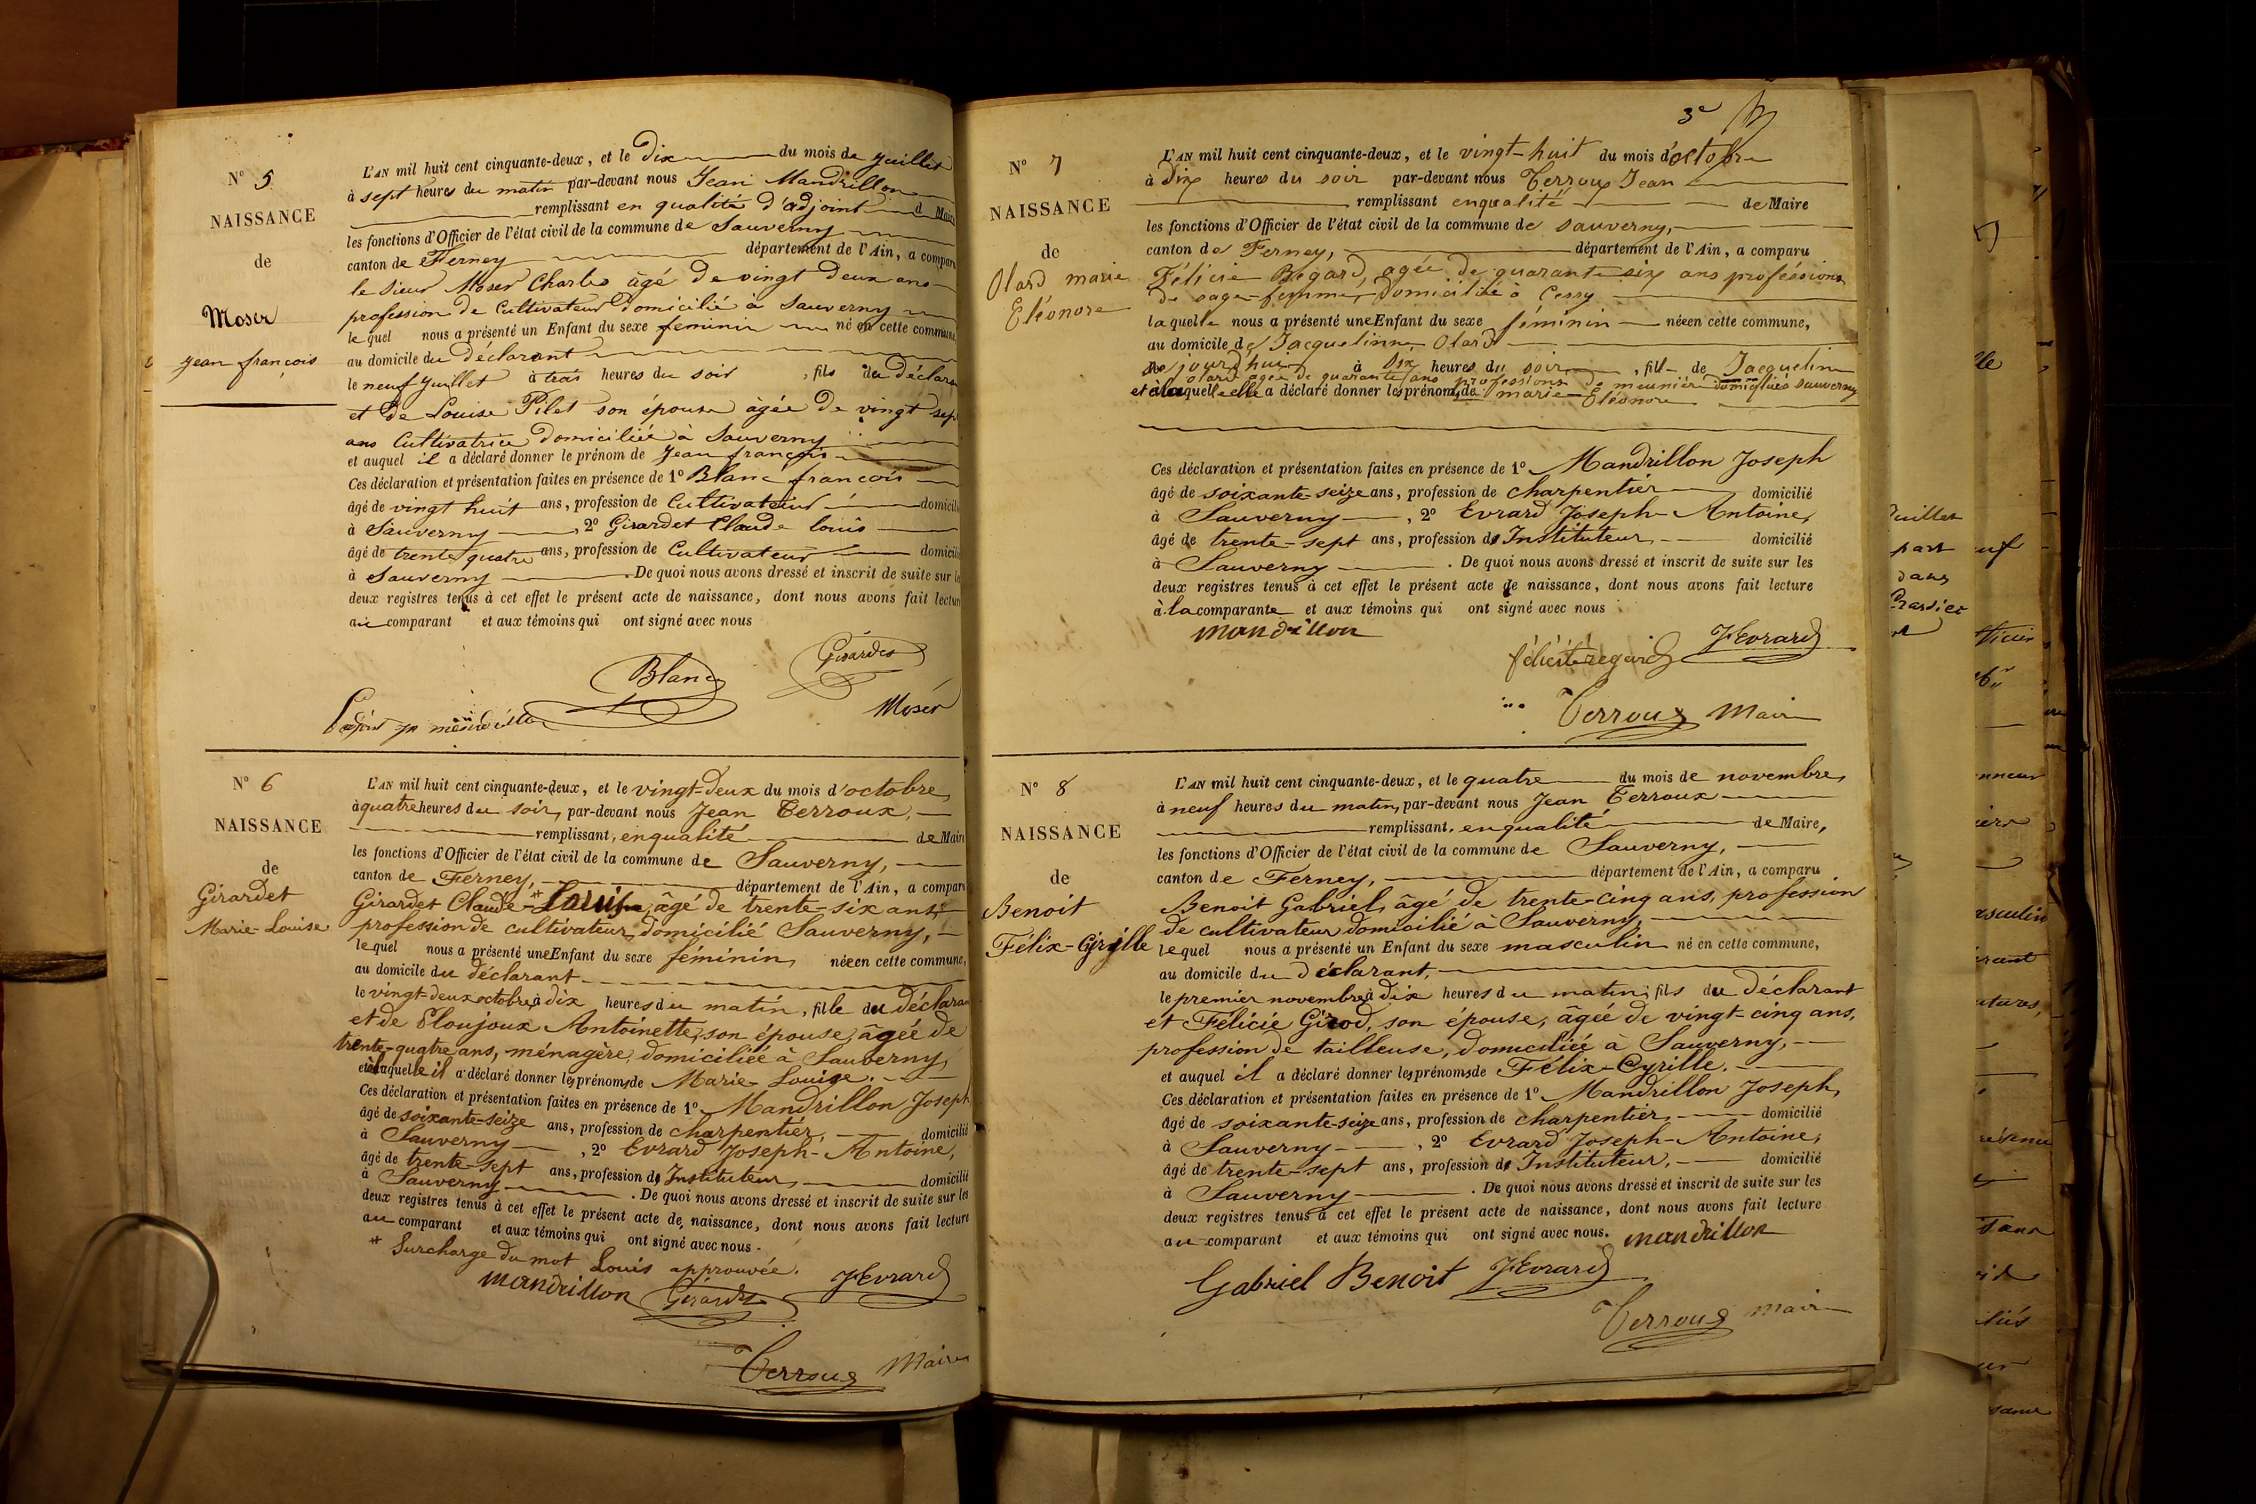 N° 5
NAISSANCE
de
Moser
Jean françois
L'AN mil huit cent cinquante-deux, et le Dix du mois de Juillet
à sept heures du matin par-devant nous Jean Mandrillon
remplissant en qualité d'adjoint d Maire
les fonctions d'Officier de l'état civil de la commune de Sauverny
canton de Ferney département de l'Ain, a comparu
le sieur Moser Charles âgé de vingt deux ans
profession de Cultivateur domicilié à Sauverny
lequel nous a présenté un Enfant du sexe feminin né en cette commune
au domicile du déclarant
le neuf Juillet à trois heures du soir, fils du Déclara
et de Louise Pilet son épouse âgée de vingt sept
ans Cultivatrice domiciliée à Sauverny
et auquel il a déclaré donner le prénom de Jean françois
Ces déclaration et présentation faites en présence de 1° Blanc françois
âgé de vingt huit ans, profession de Cultivateur domicilié
à Sauverny, 2° Girardet Claude louis
âgé de trente quatre ans, profession de Cultivateur domicilié
à Sauverny. De quoi nous avons dressé et inscrit de suite sur le
deux registres tenus à cet effet le présent acte de naissance, dont nous avons fait lecture
au comparant et aux témoins qui ont signé avec nous
Girardet
Blanc
Moser
N° 6
NAISSANCE
de
Girardet
Marie-Louise
L'AN mil huit cent cinquante-deux, et le vingt-deux du mois d'octobre,
à quatre heures du soir, par-devant nous Jean Terroux,
remplissant, en qualité de Maire
les fonctions d'Officier de l'état civil de la commune de Sauverny,
canton de Ferney, département de l'Ain, a comparu
Girardet Claude-* Louis, âgé de trente-six ans,
profession de cultivateur, domicilié Sauverny,
lequel nous a présenté une Enfant du sexe féminin, née en cette commune,
au domicile du déclarant
le vingt-deux octobre, à dix heures du matin, fille du déclarant
et de Ploujoux Antoinette, son épouse, âgée de
trente-quatre ans, ménagère, domiciliée à Sauverny,
et à laquelle il a déclaré donner les prénoms de Marie-Louise.
Ces déclaration et présentation faites en présence de 1° Mandrillon Joseph
âgé de soixante-seize ans, profession de charpentier, domicilié
à Sauverny, 2° Evrard Joseph-Antoine,
âgé de trente-sept ans, profession d'Instituteur, domicilié
à Sauverny. De quoi nous avons dressé et inscrit de suite sur les
deux registres tenus à cet effet le présent acte de naissance, dont nous avons fait lecture
au comparant et aux témoins qui ont signé avec nous.
* Surcharge du mot Louis approuvée.
mandrillon Girardet JEvrard
Terroux Maire
3e
N° 7
NAISSANCE
de
Olard marie
Eléonore
L'AN mil huit cent cinquante-deux, et le vingt-huit du mois d'octobre
à Dix heures du soir par-devant nous Terroux Jean
remplissant enqualité de Maire
les fonctions d'Officier de l'état civil de la commune de sauverny,
canton de Ferney, département de l'Ain, a comparu
Félicie Regard, agée de quarante six ans proféssions
de sage-femme, Domicilié à Cessy
laquelle nous a présenté une Enfant du sexe féminin née en cette commune,
au domicile de Jacquelinne Olard
ce jourd'hui à Dix heures du soir, fill de Jacqueline
olard agée de quarante ans professions de meunière domiciliés sauverny
et à laquelle elle a déclaré donner les prénoms de marie-Eléonore
Ces déclaration et présentation faites en présence de 1° Mandrillon Joseph
âgé de soixante-seize ans, profession de charpentier domicilié
à Sauverny, 2° Evrard Joseph-Antoine,
âgé de trente-sept ans, profession d'Instituteur, domicilié
à Sauverny. De quoi nous avons dressé et inscrit de suite sur les
deux registres tenus à cet effet le présent acte de naissance, dont nous avons fait lecture
à la comparante et aux témoins qui ont signé avec nous
mandrillon
JEvrard
félicité regard
Terroux Maire
N° 8
NAISSANCE
de
Benoit
Félix-Cyrille
L'AN mil huit cent cinquante-deux, et le quatre du mois de novembre,
à neuf heures du matin, par-devant nous Jean Terroux
remplissant, en qualité de Maire,
les fonctions d'Officier de l'état civil de la commune de Sauverny,
canton de Ferney, département de l'Ain, a comparu
Benoit Gabriel, âgé de trente-cinq ans, profession
de cultivateur, domicilié à Sauverny,
lequel nous a présenté un Enfant du sexe masculin né en cette commune,
au domicile du déclarant,
le premier novembre, à dix heures du matin, fils du déclarant
et Félicie Girod, son épouse, âgée de vingt-cinq ans,
profession de tailleuse, domiciliée a Sauverny,
et auquel il a déclaré donner les prénoms de Félix-Cyrille.
Ces déclaration et présentation faites en présence de 1° Mandrillon Joseph,
âgé de soixante-seize ans, profession de charpentier, domicilié
à Sauverny, 2° Evrard Joseph-Antoine,
âgé de trente-sept ans, profession d'Instituteur, domicilié
à Sauverny. De quoi nous avons dressé et inscrit de suite sur les
deux registres tenus à cet effet le présent acte de naissance, dont nous avons fait lecture
au comparant et aux témoins qui ont signé avec nous. mandrillon
Gabriel Benoit JEvrard
Terroux maire